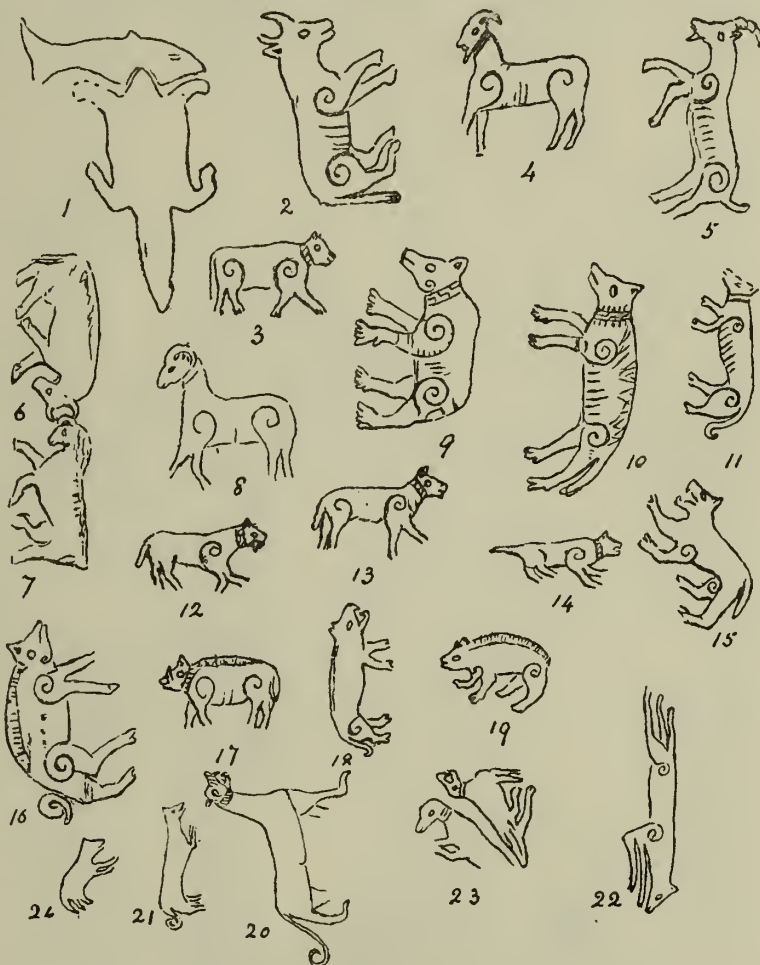 1 2 4 5
3
6 8 9 10 11
7 12 13 14 15
16 17 18 19
24 21 20 23 22